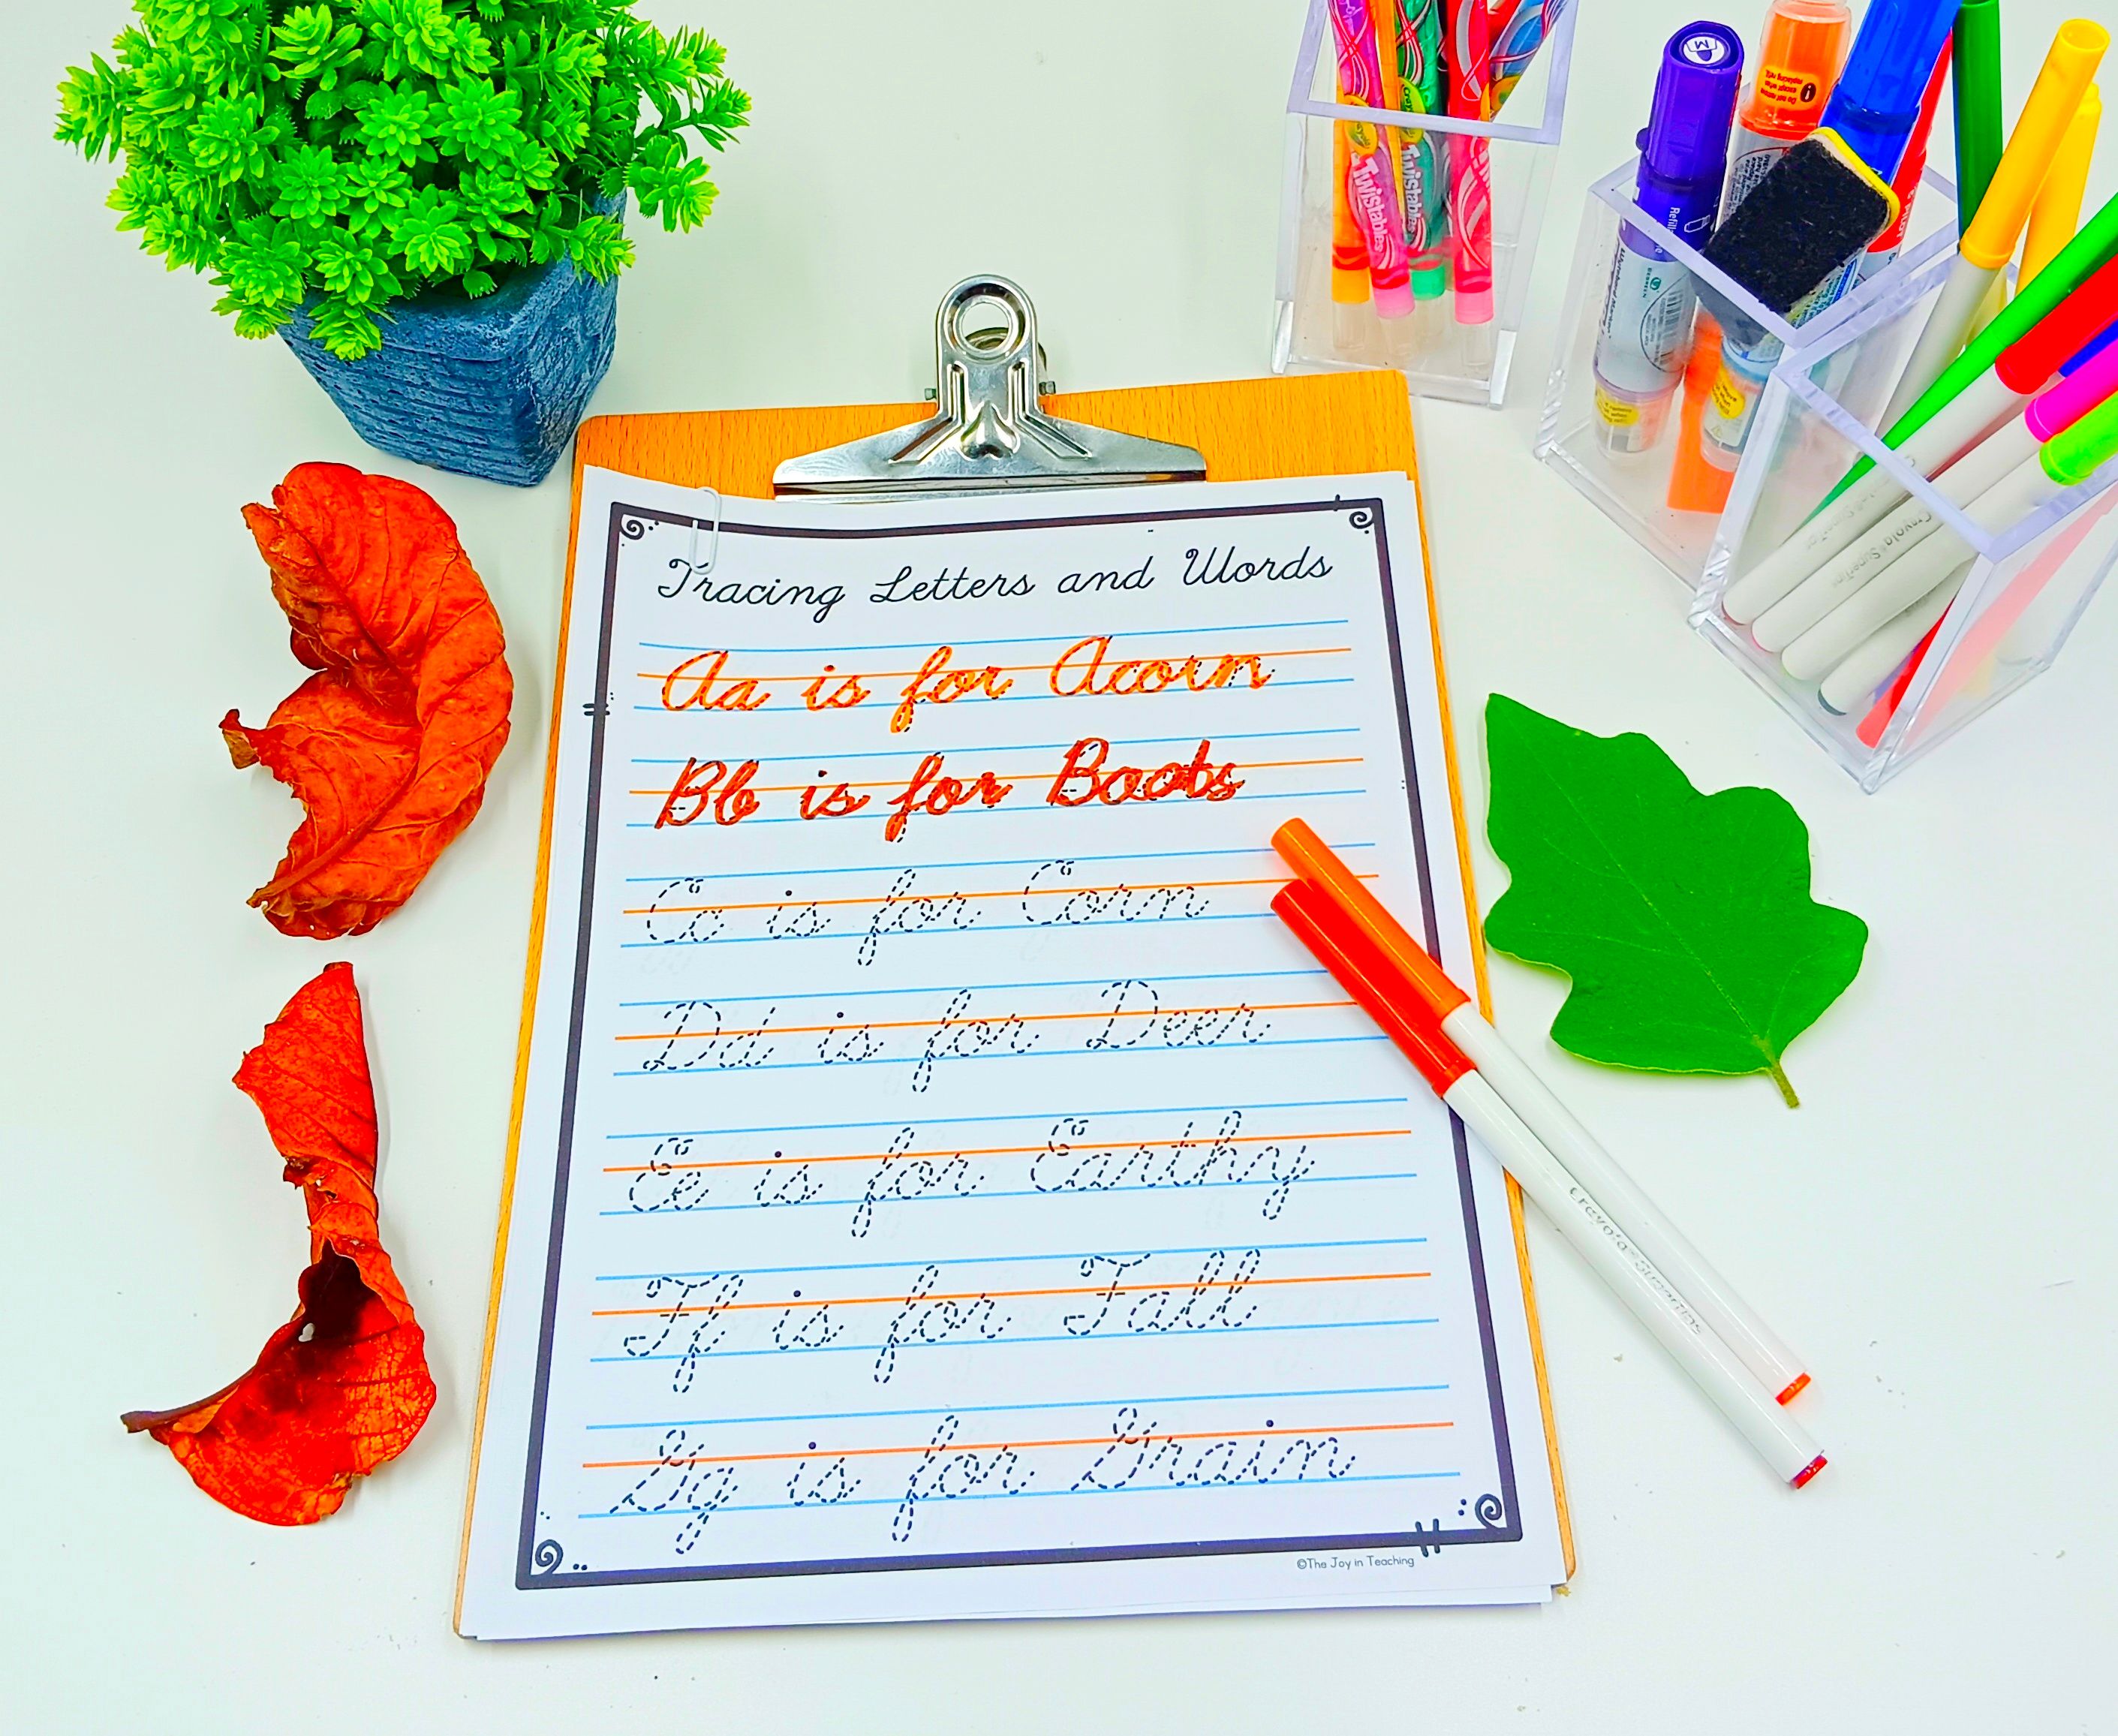 Twistables
Twistables
M
Refill
Crayola SuperTips
Tracing Letters and Words
Aa is for Acorn
Bb is for Boots
Cc is for Corn
Dd is for Deer
Ee is for Earthy
Ff is for Fall
Gg is for Grain
Crayola SuperTips
©The Joy in Teaching